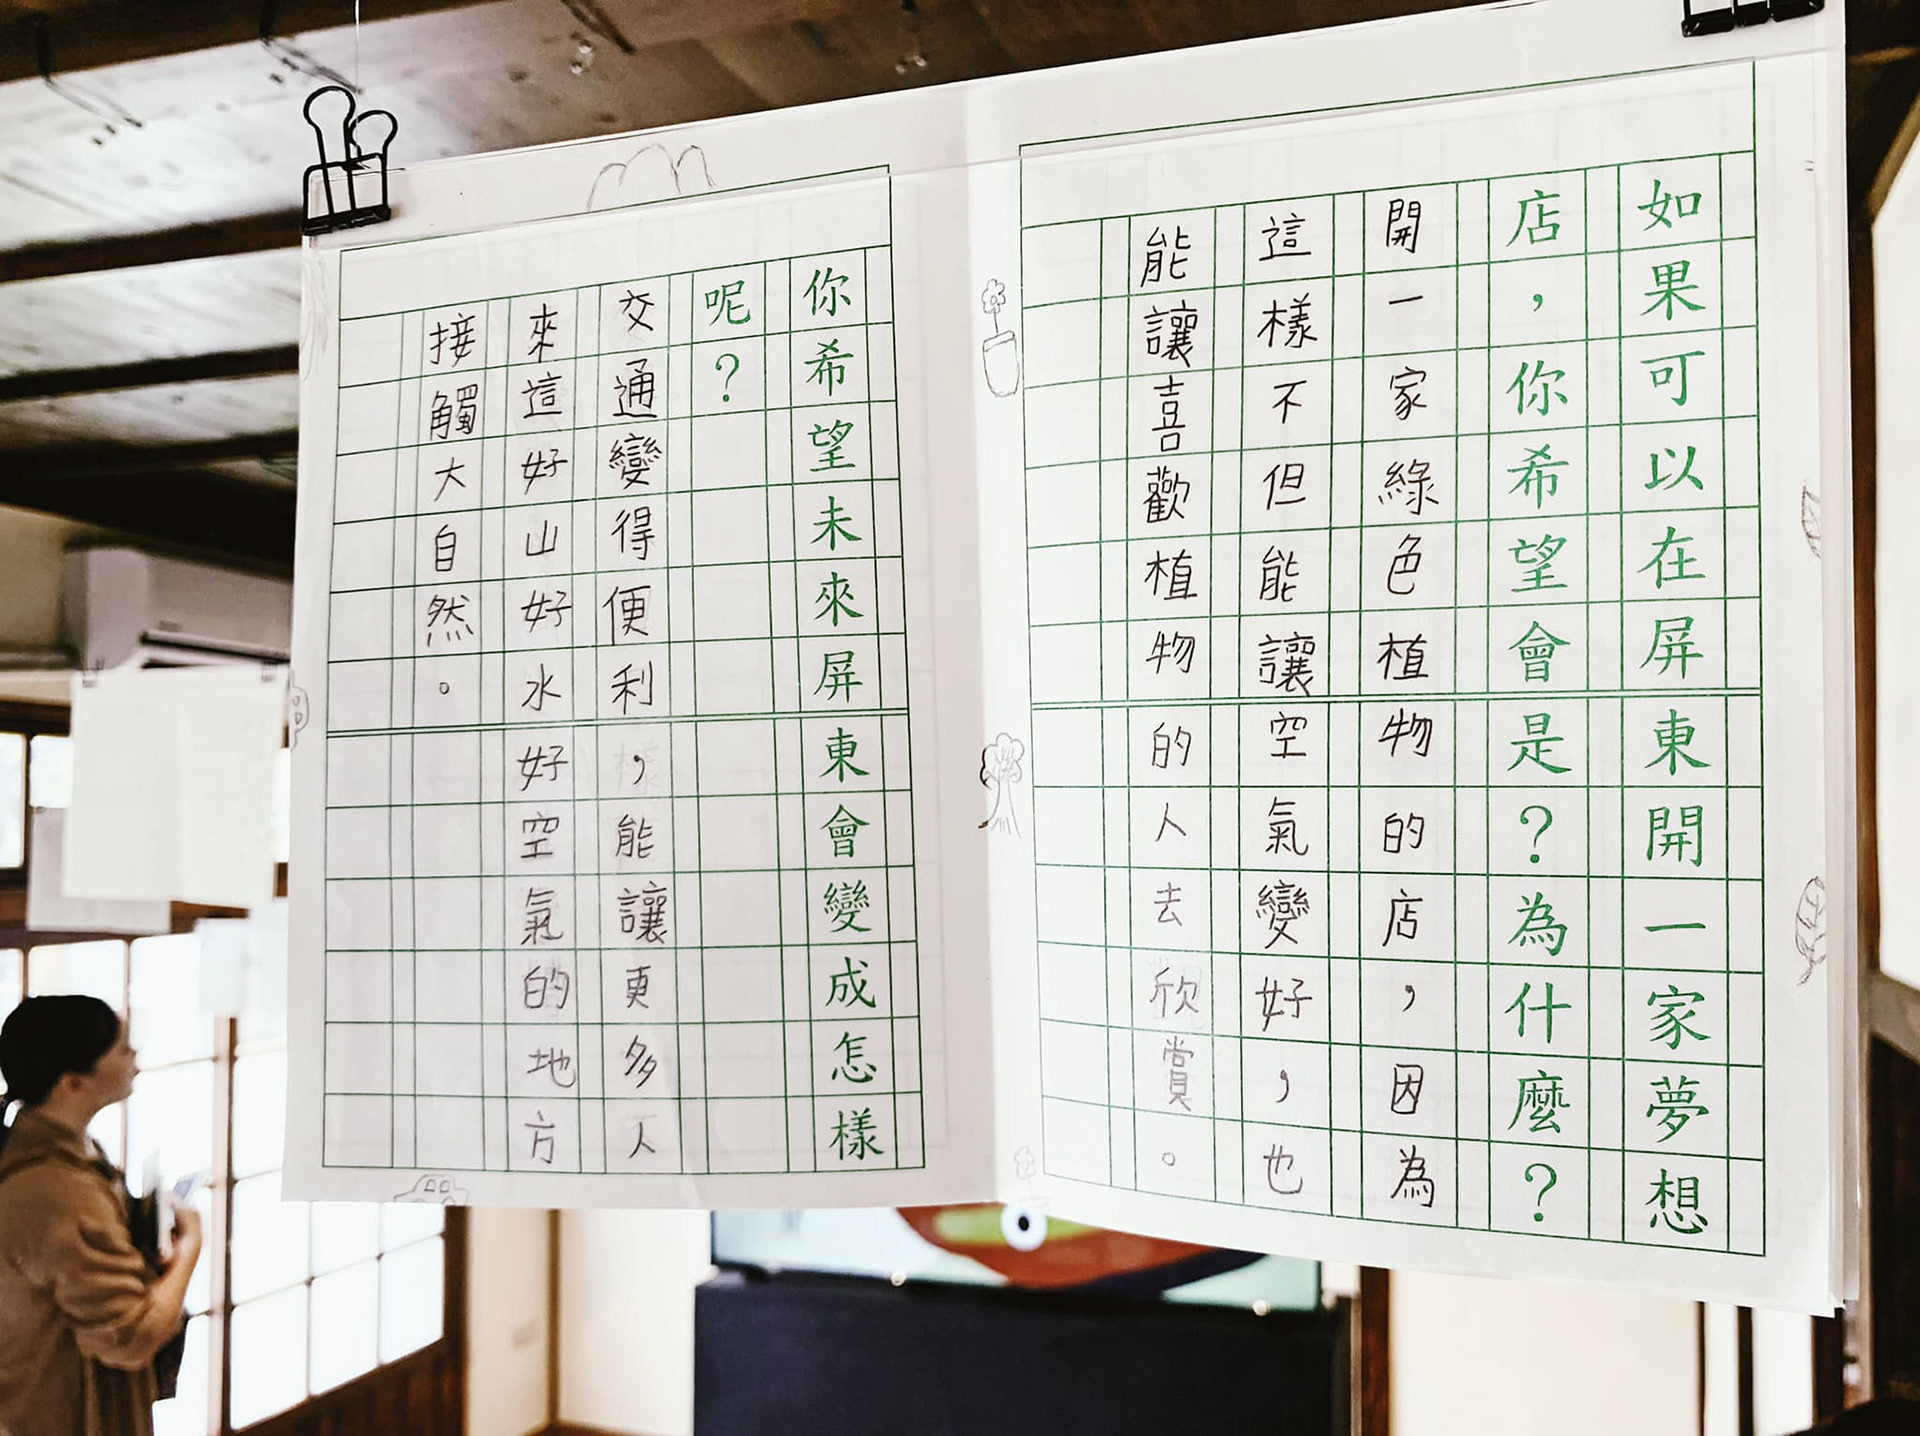 如果可以在屏東開一家夢想
店，你希望會是？為什麼？
開一家綠色植物的店，因為
這樣不但能讓空氣變好，也
能讓喜歡植物的人去欣賞。
你希望未來屏東會變成怎樣
呢？
交通變得便利，能讓更多人
來這好山好水好空氣的地方
接觸大自然。